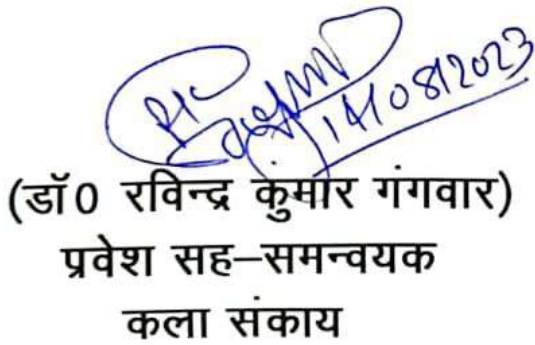 14/08/2023
(डॉ0 रविन्द्र कुमार गंगवार)
प्रवेश सह–समन्वयक
कला संकाय